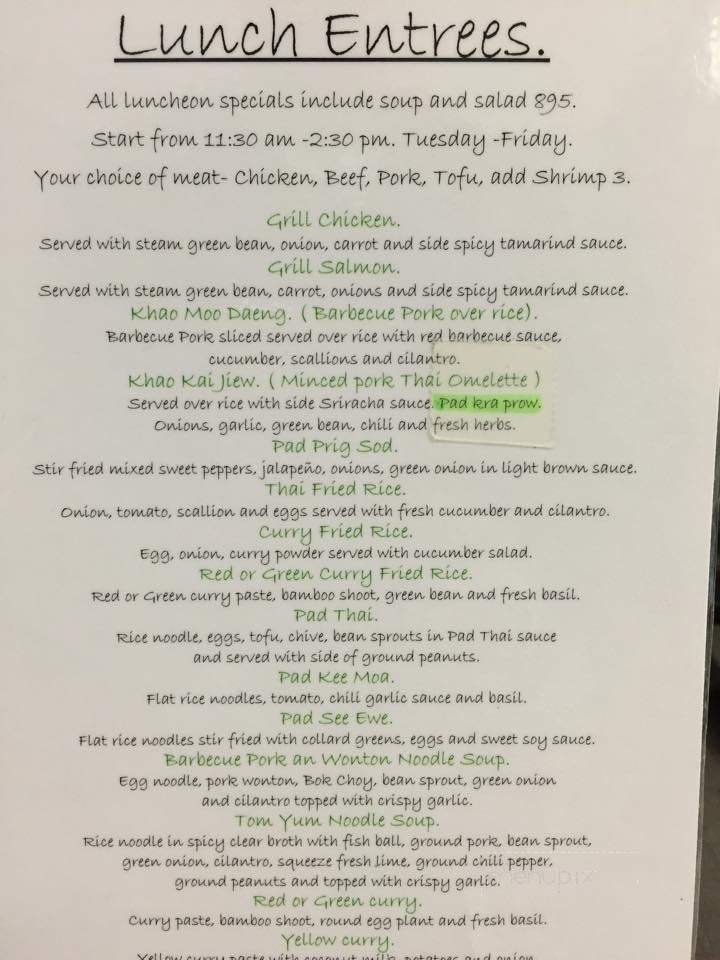 Lunch Entrees.
All luncheon specials include soup and salad 895.
Start from 11:30 am -2:30 pm. Tuesday -Friday.
Your choice of meat- Chicken, Beef, Pork, Tofu, add Shrimp 3.
Grill Chicken.
Served with steam green bean, onion, carrot and side spicy tamarind sauce.
Grill Salmon.
Served with steam green bean, carrot, onions and side spicy tamarind sauce.
Khao Moo Daeng. ( Barbecue Pork over rice).
Barbecue Pork sliced served over rice with red barbecue sauce,
cucumber, scallions and cilantro.
Khao Kai Jiew. ( Minced pork Thai Omelette )
Served over rice with side Sriracha sauce. Pad kra prow.
Onions, garlic, green bean, chili and fresh herbs.
Pad Prig Sod.
Stir fried mixed sweet peppers, jalapeño, onions, green onion in light brown sauce.
Thai Fried Rice.
Onion, tomato, scallion and eggs served with fresh cucumber and cilantro.
Curry Fried Rice.
Egg, onion, curry powder served with cucumber salad.
Red or Green Curry Fried Rice.
Red or Green curry paste, bamboo shoot, green bean and fresh basil.
Pad Thai.
Rice noodle, eggs, tofu, chive, bean sprouts in Pad Thai sauce
and served with side of ground peanuts.
Pad Kee Moa.
Flat rice noodles, tomato, chili garlic sauce and basil.
Pad See Ewe.
Flat rice noodles stir fried with collard greens, eggs and sweet soy sauce.
Barbecue Pork an Wonton Noodle Soup.
Egg noodle, pork wonton, Bok Choy, bean sprout, green onion
and cilantro topped with crispy garlic.
Tom Yum Noodle Soup.
Rice noodle in spicy clear broth with fish ball, ground pork, bean sprout,
green onion, cilantro, squeeze fresh lime, ground chili pepper,
ground peanuts and topped with crispy garlic.
Red or Green curry.
Curry paste, bamboo shoot, round egg plant and fresh basil.
Yellow curry.
Yellow curry paste with coconut milk, potatoes and onion